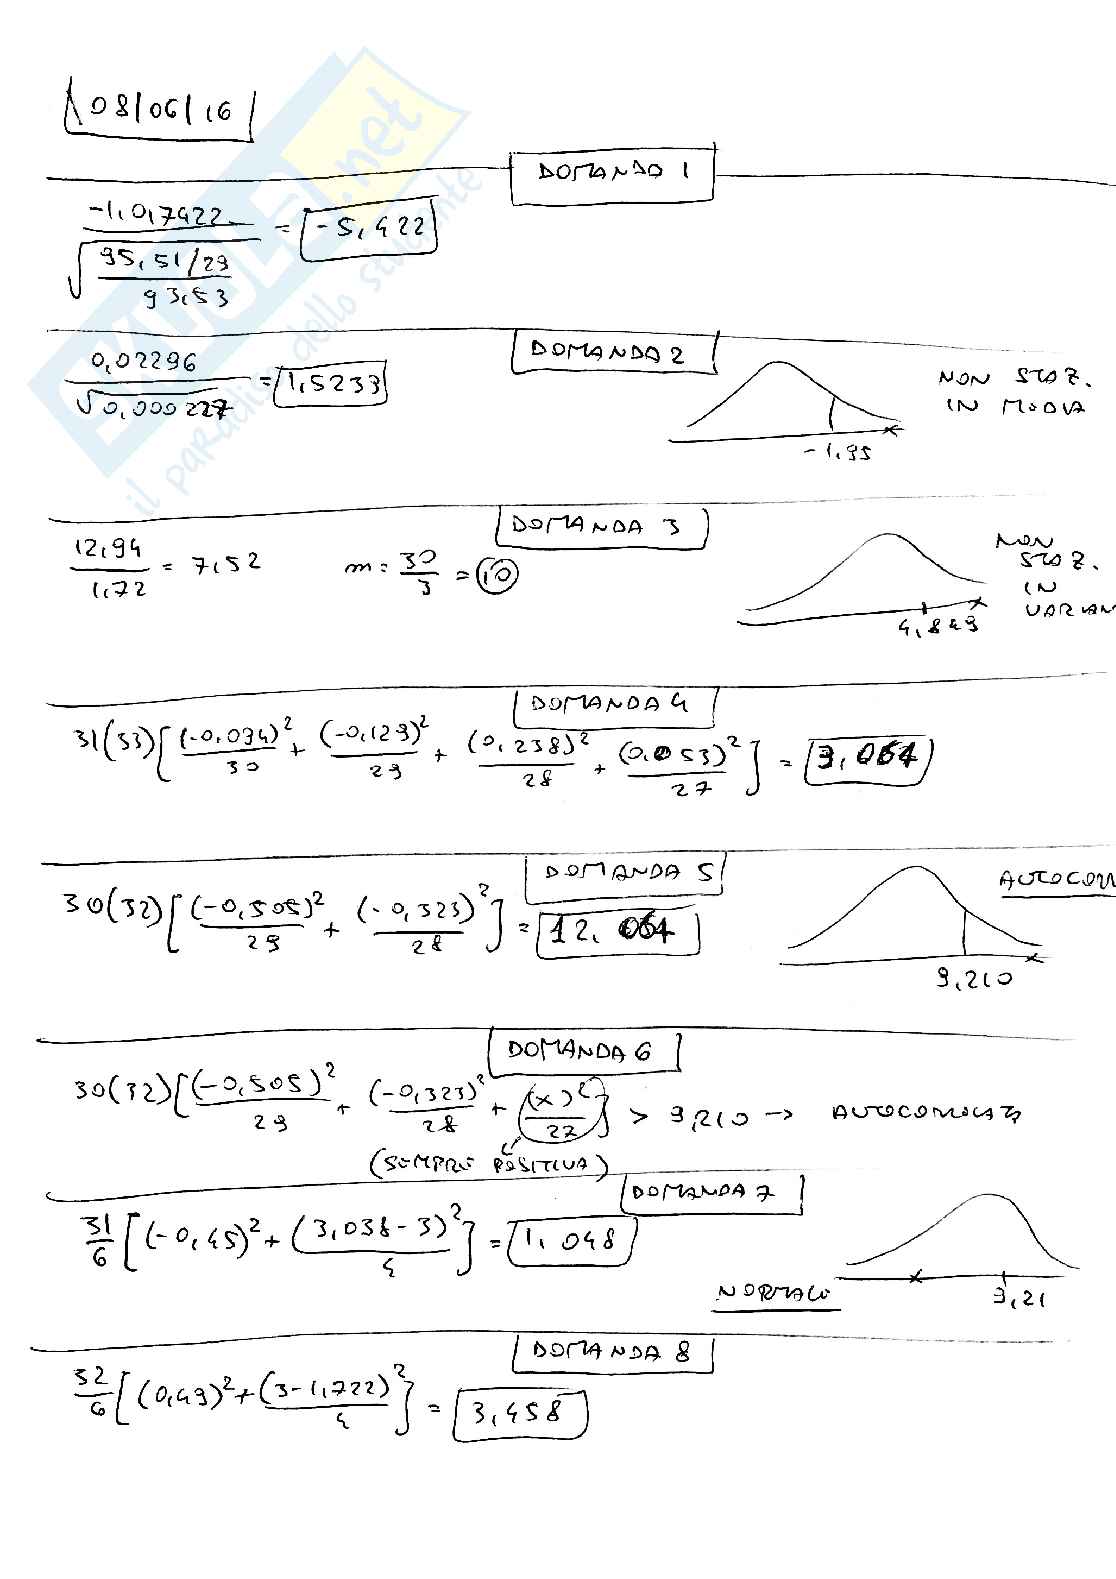 08/06/16
DOMANDA 1
-1,017422 / √((95,51/29) / 93,53) = -5,422
DOMANDA 2
0,02296 / √0,000227 = 1,5233
NON STAZ.
IN MEDIA
-1,95
DOMANDA 3
12,94 / 1,72 = 7,52 m = 30/3 = 10
NON
STAZ.
IN
VARIAN
4,849
DOMANDA 4
31(33)[(-0,094)²/30 + (-0,129)²/29 + (0,238)²/28 + (0,053)²/27] = 3,064
DOMANDA 5
30(32)[(-0,505)²/29 + (-0,323)²/28] = 12,064
AUTOCORR
9,210
DOMANDA 6
30(32)[(-0,505)²/29 + (-0,323)²/28 + (x)²/27] > 9,210 → AUTOCORRELAZ
(SEMPRE POSITIVA)
DOMANDA 7
31/6 [(-0,45)² + (3,038-3)²/4] = 1,048
NORMALE
9,21
DOMANDA 8
32/6 [(0,49)² + (3-1,722)²/4] = 3,458
SKUOLA.net
il paradiso dello studente